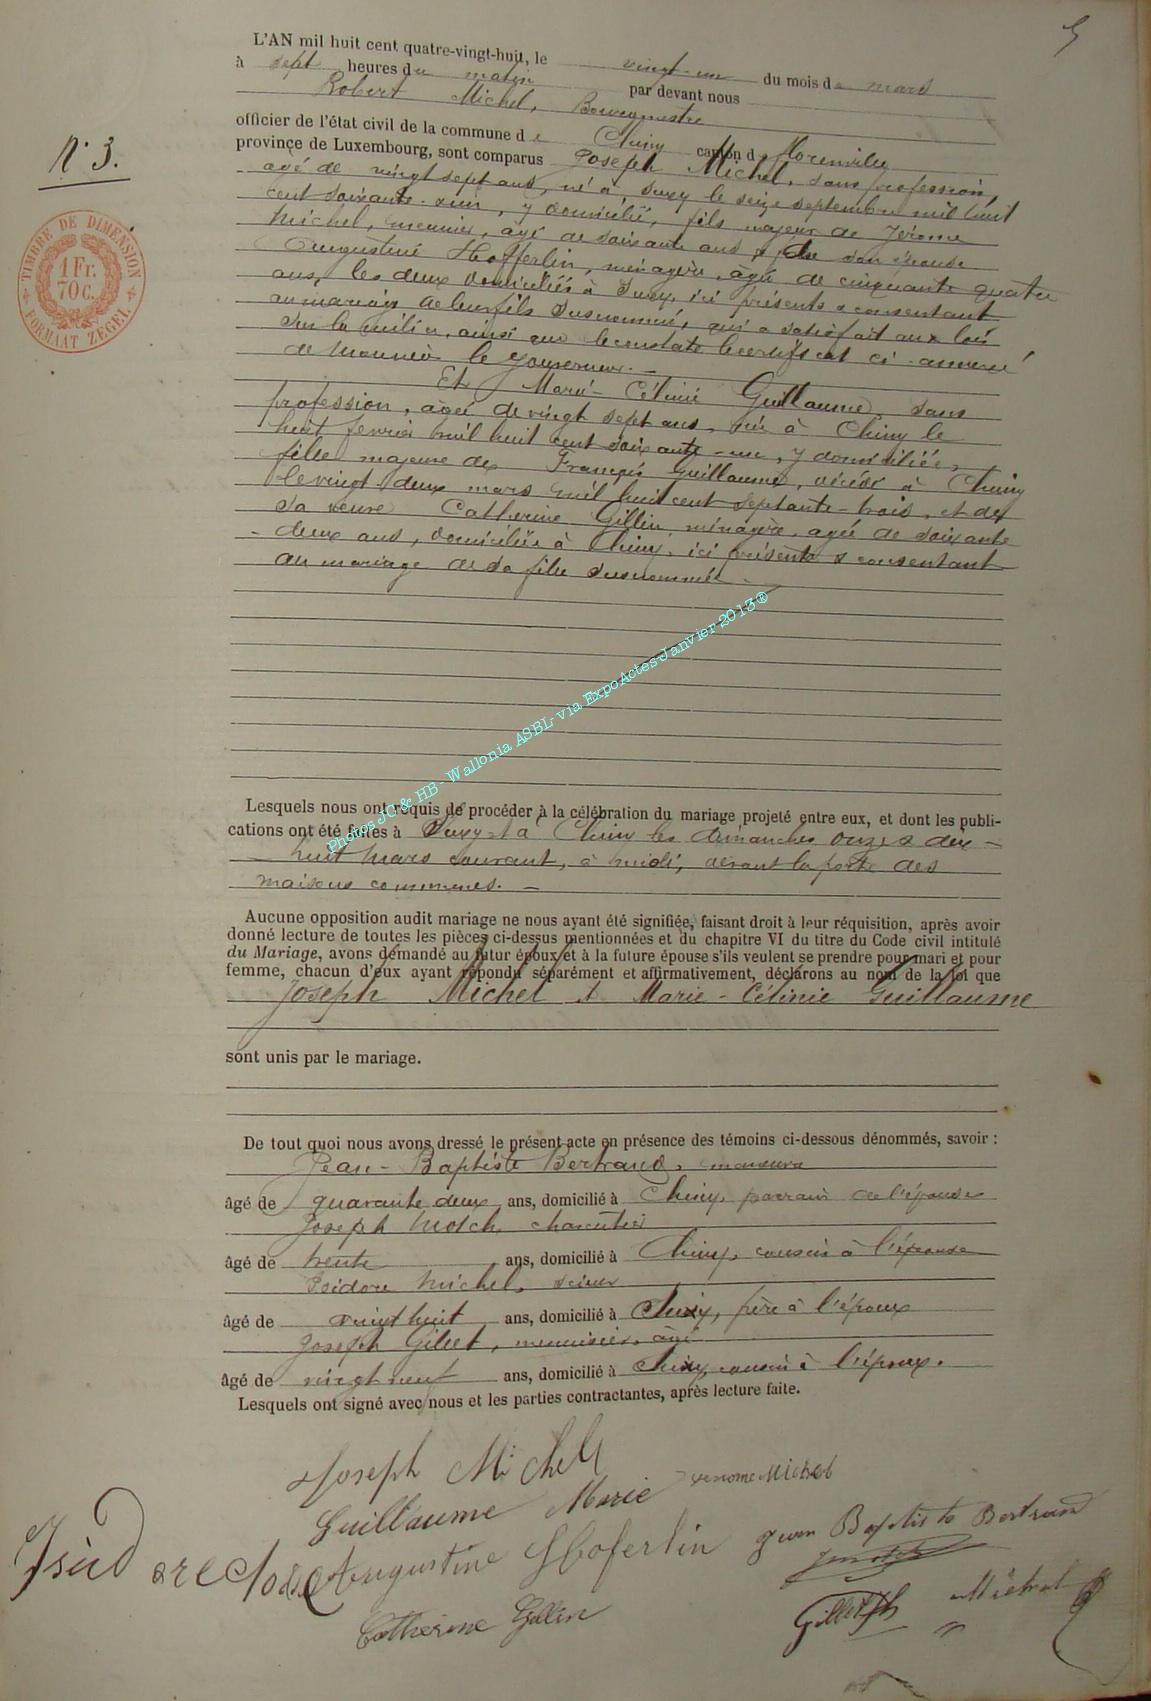 5
L'AN mil huit cent quatre-vingt-huit, le vingt-un du mois de mars
à sept heures du matin par devant nous
Robert Michel, Bourgmestre
officier de l'état civil de la commune de Chiny canton de Florenville
province de Luxembourg, sont comparus Joseph Michel, sans profession,
N° 3.
âgé de vingt sept ans, né à Suxy le seize septembre mil huit
cent soixante, y domicilié, fils majeur de Jérome
Michel, meunier, âgé de soixante ans & de son épouse
Augustine Hofferlin, ménagère, âgée de cinquante quatre
ans, les deux domiciliés à Suxy, ici présents & consentant
au mariage de leur fils susnommé, qui a satisfait aux lois
sur la milice, ainsi que le constate le certificat ci-annexé
de Monsieur le gouverneur. —
Et Marie-Célinie Guillaume, sans
profession, âgée de vingt sept ans, née à Chiny le
huit février mil huit cent soixante-un, y domiciliée,
fille majeure de François Guillaume, décédé à Chiny
le vingt deux mars mil huit cent septante-trois, et de
sa veuve Catherine Gillin, ménagère, agée de soixante
deux ans, domiciliée à Chiny, ici présente & consentant
au mariage de sa fille susnommée. —
TIMBRE DE DIMENSION
1 Fr.
70 c.
FORMAAT ZEGEL
Photos JC & HB - Wallonia ASBL via ExpoActes-Janvier 2013®
Lesquels nous ont requis de procéder à la célébration du mariage projeté entre eux, et dont les publi-
cations ont été faites à Suxy et à Chiny les dimanches onze & dix-
huit mars courant, à midi, devant la porte des
maisons communes. —
Aucune opposition audit mariage ne nous ayant été signifiée, faisant droit à leur réquisition, après avoir
donné lecture de toutes les pièces ci-dessus mentionnées et du chapitre VI du titre du Code civil intitulé
du Mariage, avons demandé au futur époux et à la future épouse s'ils veulent se prendre pour mari et pour
femme, chacun d'eux ayant répondu séparément et affirmativement, déclarons au nom de la loi que
Joseph Michel & Marie-Célinie Guillaume
sont unis par le mariage.
De tout quoi nous avons dressé le présent acte en présence des témoins ci-dessous dénommés, savoir :
Jean-Baptiste Bertrand, manœuvre
âgé de quarante deux ans, domicilié à Chiny, parrain de l'épouse
Joseph charcutier
âgé de trente ans, domicilié à Chiny, cousin à l'épouse
Isidore Michel, scieur
âgé de vingt huit ans, domicilié à Suxy, frère à l'époux
Joseph Gillet, menuisier, âgé
âgé de vingt neuf ans, domicilié à Suxy, cousin à l'époux.
Lesquels ont signé avec nous et les parties contractantes, après lecture faite.
Joseph Michel
Guillaume Marie Jerome Michel
Augustine Hoferlin Jean Baptiste Bertrand
Catherine Gillin Gillet Jph Michel